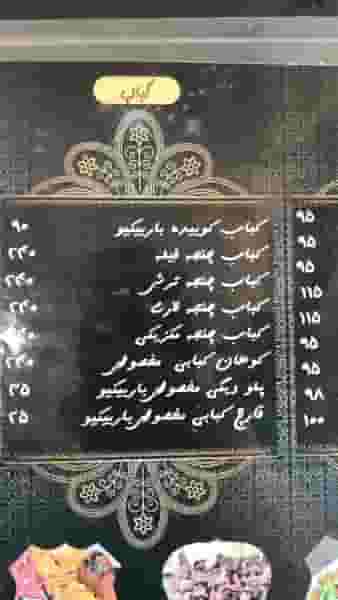 کباب
کباب کوبیده باربیکیو ۹۰
کباب چنجه فیله ۲۴۰
کباب چنجه ترش ۲۴۰
کباب چنجه ۲۴۰
کباب چنجه مکزیکی ۲۴۰
کوهان کبابی مخصوص ۲۴۰
پلو ویکی مخصوص باربیکیو ۳۵
قارچ کبابی مخصوص باربیکیو ۲۵
۹۵
۹۵
۹۵
۱۱۵
۱۱۵
۹۵
۹۵
۹۸
۱۰۰